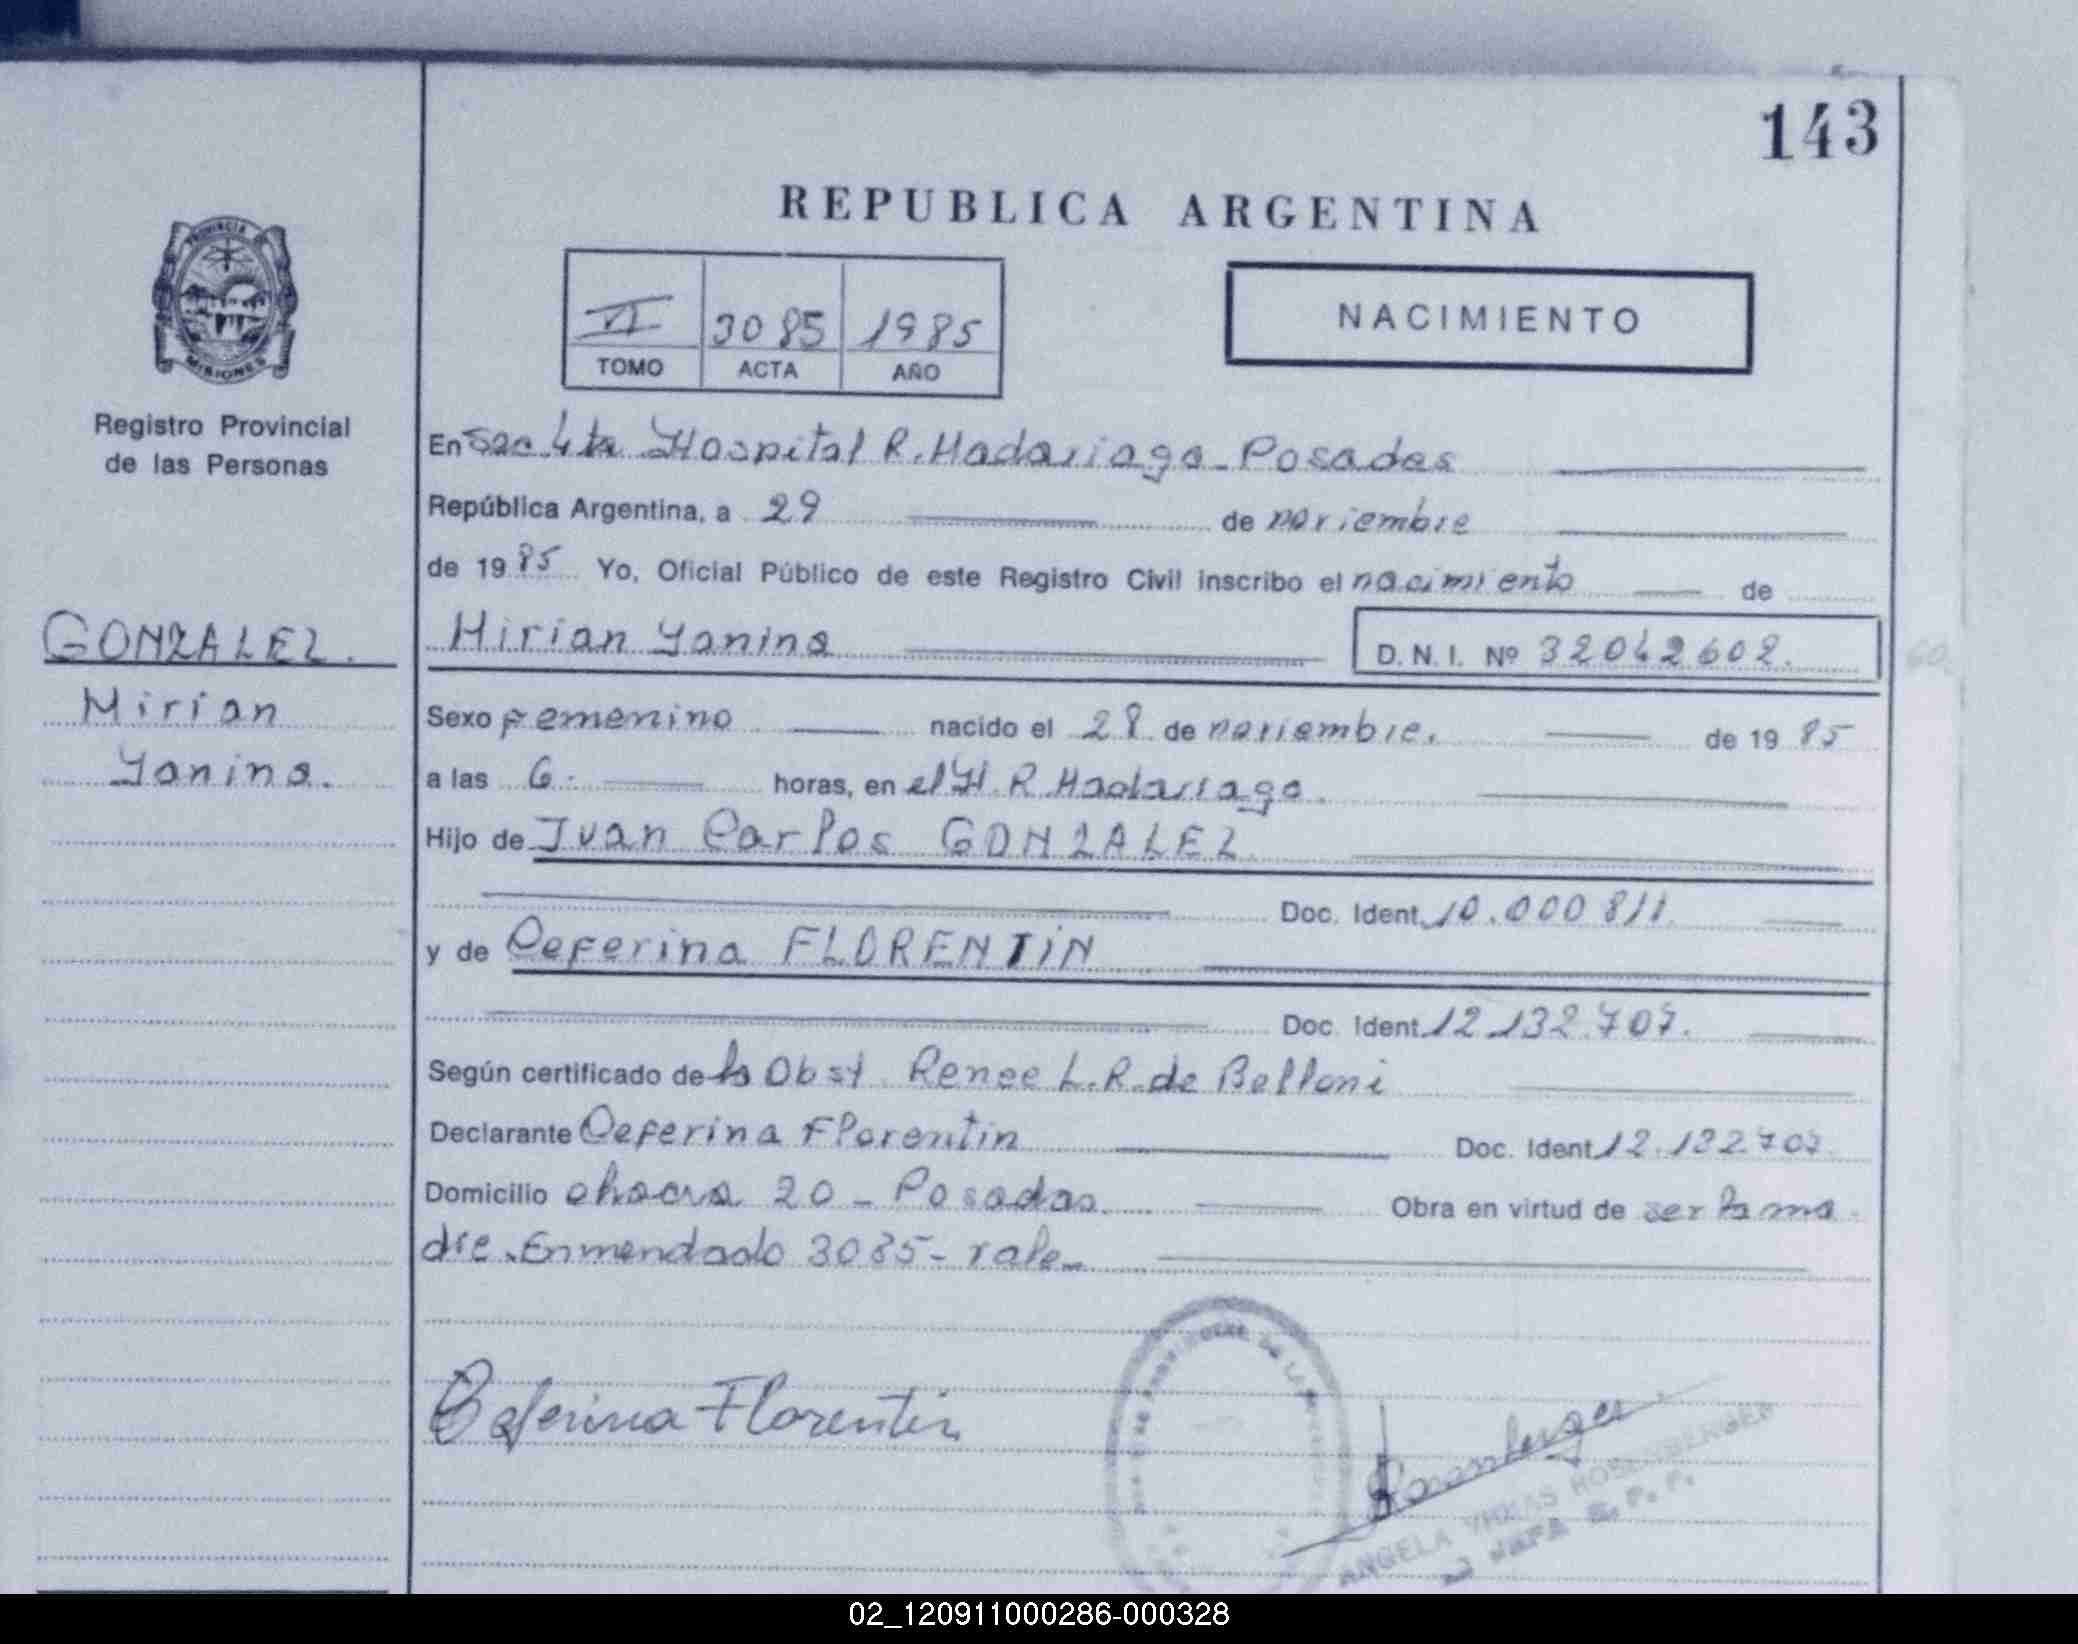 143
REPUBLICA ARGENTINA
PROVINCIA DE
MISIONES
Registro Provincial
de las Personas
VI 3085 1985
TOMO ACTA AÑO
NACIMIENTO
En Sec 4ta Hospital R. Madariaga - Posadas
República Argentina, a 29 de noviembre
de 1985 Yo, Oficial Público de este Registro Civil inscribo el nacimiento de
GONZALEZ.
Mirian
Yanina.
Mirian Yanina D. N. I. Nº 32042602.
Sexo Femenino nacido el 28 de noviembre. de 1985
a las 6. horas, en el H. R. Madariaga.
Hijo de Juan Carlos GONZALEZ
Doc. Ident. 10.000811
y de Ceferina FLORENTIN
Doc. Ident. 12.132.707.
Según certificado de la Obst. Renee L. R. de Belloni
Declarante Ceferina Florentin Doc. Ident. 12.132707.
Domicilio chacra 20 - Posadas. Obra en virtud de ser la ma
dre. Enmendado 3085 - vale.
Ceferina Florentin
Rosenberger
ANGELA ROSENBERGER
JEFA
02_120911000286-000328